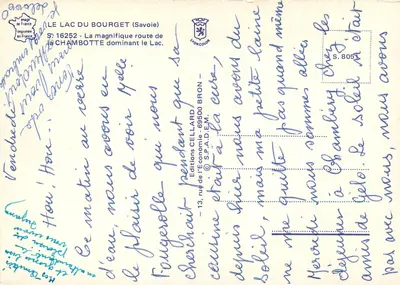 LE LAC DU BOURGET (Savoie)
S. 16252 - La magnifique route de
la CHAMBOTTE dominant le Lac.
S. 805
Editions CELLARD
13, rue de l'Economie - 69500 BRON -
© S.P.A.D.E.M.
Vendredi
Hou, Hou...
Ce matin au casse
d'eau, nous avons eu
le plaisir de voir Melle
Fougerolle qui nous
cherchait pendant que sa
cousine était à la cure,
depuis hier nous avons du
soleil, mais ma petite laine
ne me quitte pas quand même
Mercredi nous sommes allées
déjeuner à Chambéry chez les
amis de Galo. Le soleil n'était
pas avec nous, nous avons